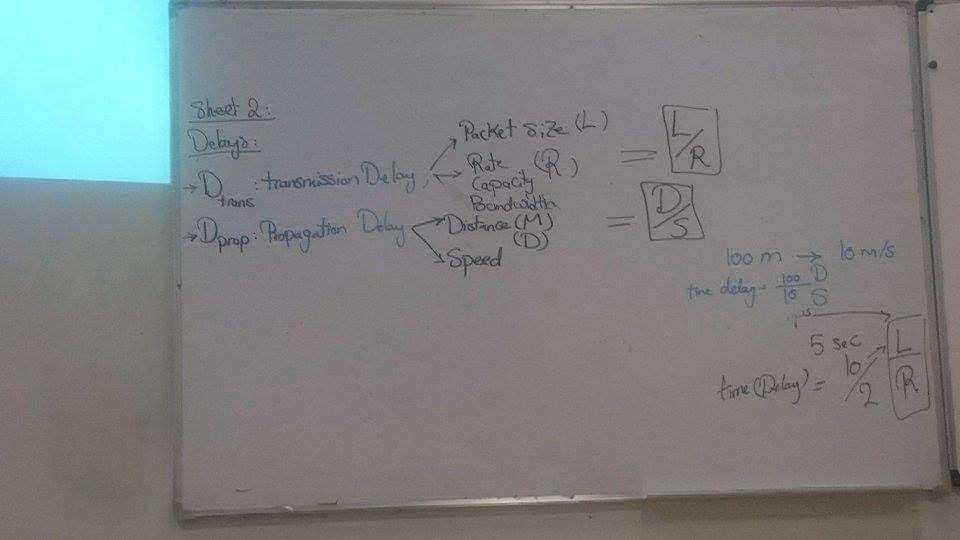 Sheet 2:
Delays:
→ Dtrans : transmission Delay, Packet Size (L) = L/R
Rate (R)
Capacity
Bandwidth
→ Dprop : Propagation Delay Distance (M) = D/S
(D)
Speed
100 m → 10 m/s
time delay = 100/10 D/S
5 sec
time (Delay) = 10/2 L/R